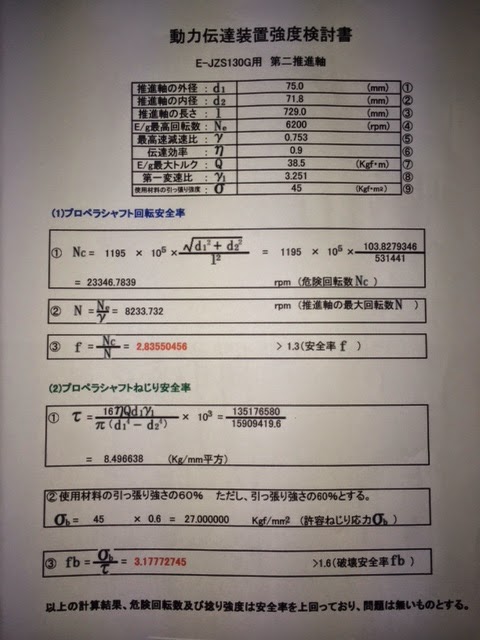 動力伝達装置強度検討書
E-JZS130G用 第二推進軸
推進軸の外径 : d₁ 75.0 (mm) ①
推進軸の内径 : d₂ 71.8 (mm) ②
推進軸の長さ : l 729.0 (mm) ③
E/g最高回転数 : Ne 6200 (rpm) ④
最高速減速比 : γ 0.753 ⑤
伝達効率 : η 0.9 ⑥
E/g最大トルク : Q 38.5 (Kgf・m) ⑦
第一変速比 : γ₁ 3.251 ⑧
使用材料の引っ張り強度 : σ 45 (Kgf・m²) ⑨
(1)プロペラシャフト回転安全率
① Nc = 1195 × 10⁵ × √d₁² + d₂² / l² = 1195 × 10⁵ × 103.8279346 / 531441
= 23346.7839 rpm (危険回転数Nc)
② N = Ne / γ = 8233.732 rpm (推進軸の最大回転数N )
③ f = Nc / N = 2.83550456 > 1.3(安全率 f )
(2)プロペラシャフトねじり安全率
① τ = 16ηQd₁γ₁ / π (d₁⁴ − d₂⁴) × 10³ = 135176580 / 15909419.6
= 8.496638 (Kg/mm平方)
② 使用材料の引っ張り強さの60% ただし、引っ張り強さの60%とする。
σb = 45 × 0.6 = 27.000000 Kgf/mm² (許容ねじり応力σb )
③ fb = σb / τ = 3.17772745 >1.6(破壊安全率fb )
以上の計算結果、危険回転数及び捻り強度は安全率を上回っており、問題は無いものとする。